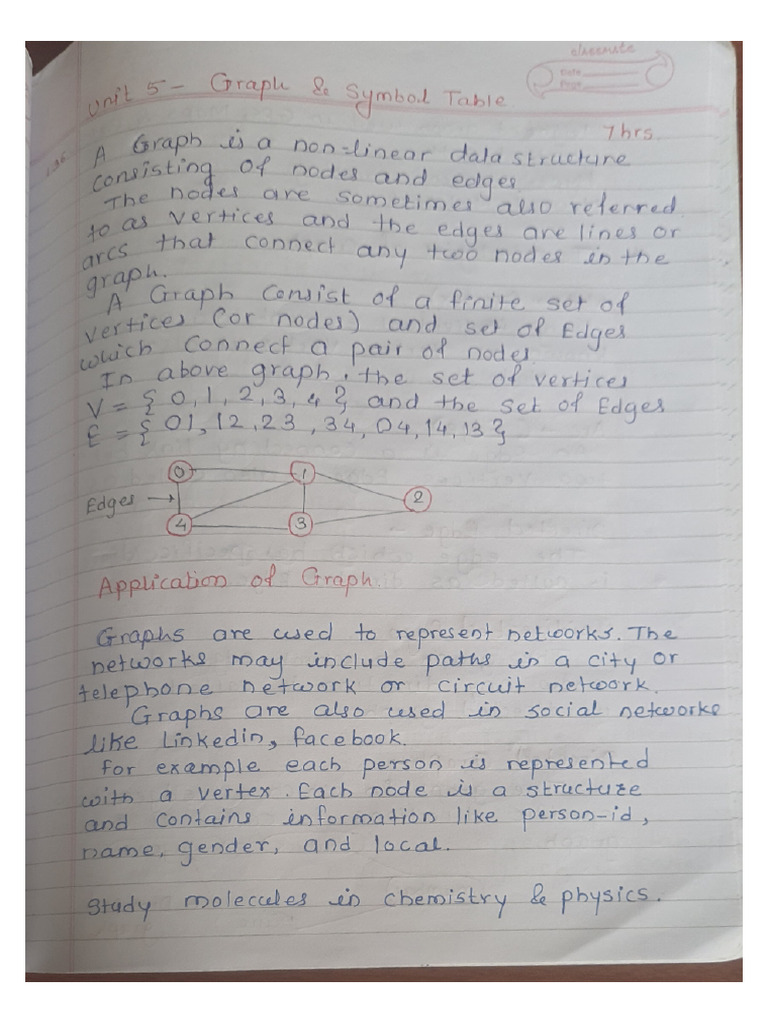 classmate
Date
Page
Unit 5 - Graph & Symbol Table
7 hrs.
A Graph is a non-linear data structure
consisting of nodes and edges
The nodes are sometimes also referred
to as vertices and the edges are lines or
arcs that connect any two nodes in the
graph.
A Graph consist of a finite set of
vertices (or nodes) and set of Edges
which connect a pair of nodes.
In above graph, the set of vertices
V = { 0, 1, 2, 3, 4 } and the set of Edges
E = { 01, 12, 23, 34, 04, 14, 13 }
0 1
2
Edges →
4 3
Application of Graph.
Graphs are used to represent networks. The
networks may include paths in a city or
telephone network or circuit network.
Graphs are also used in social networks
like Linkedin, facebook.
for example each person is represented
with a vertex. Each node is a structure
and contains information like person-id,
name, gender, and local.
Study molecules in chemistry & physics.